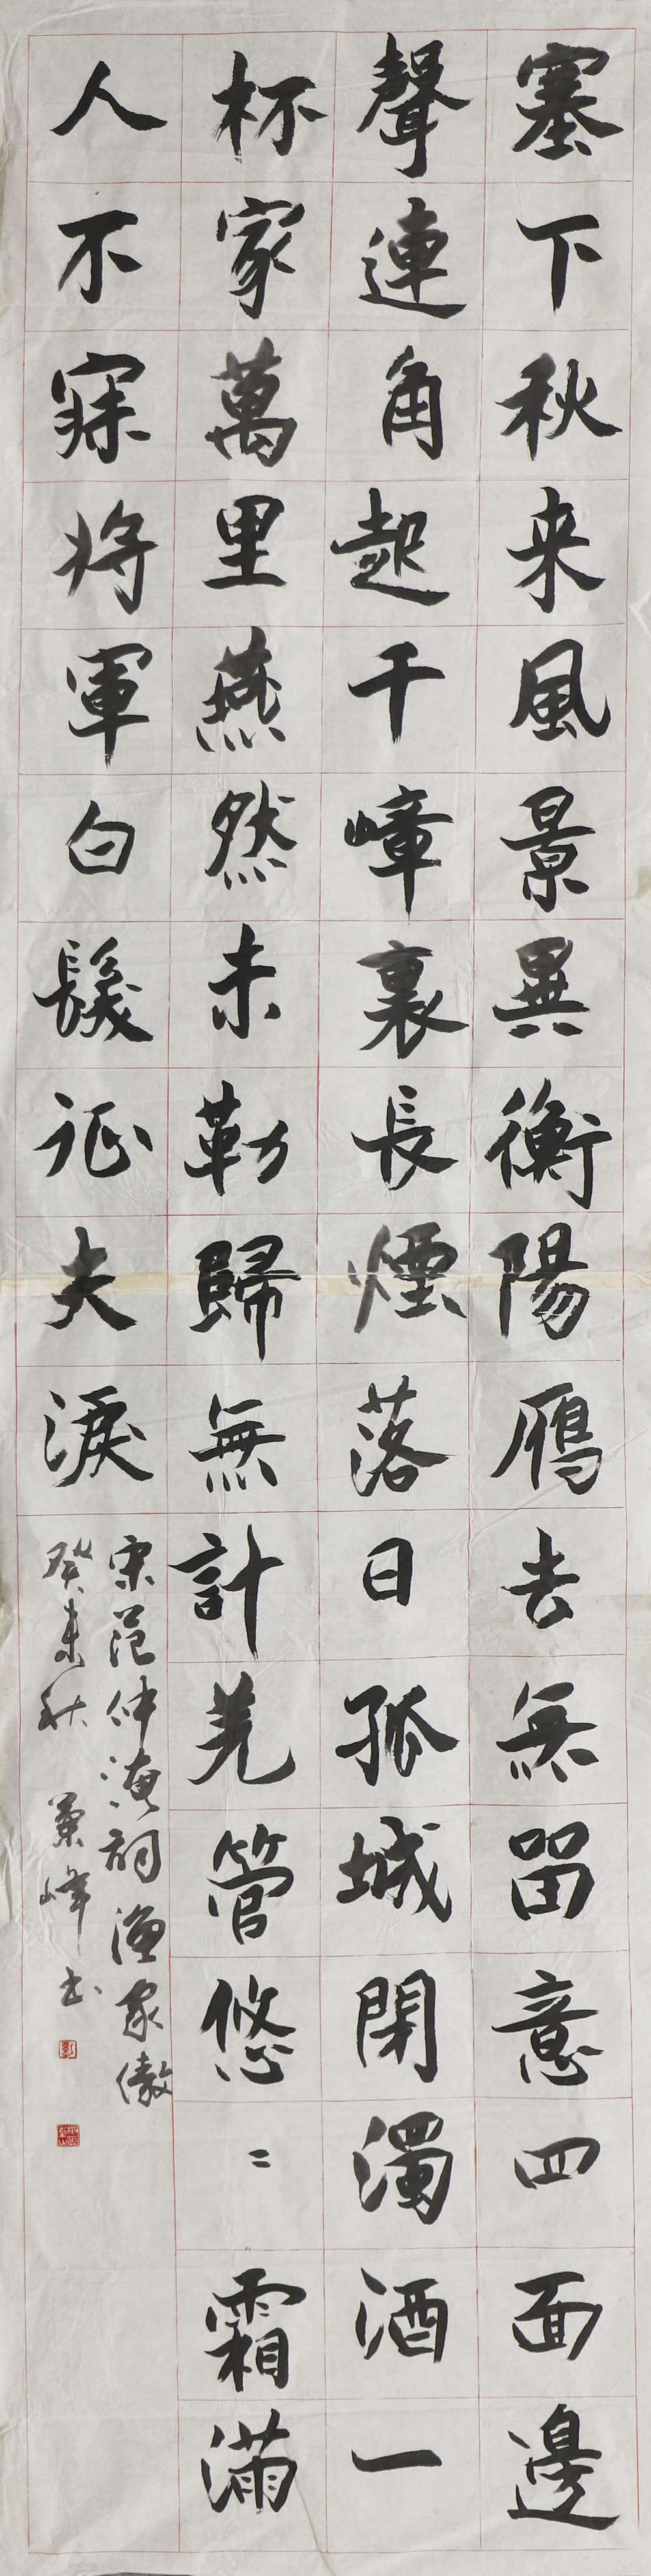 塞下秋来風景異衡陽雁去無留意四面邊
聲連角起千嶂裏長煙落日孤城閉濁酒一
杯家萬里燕然未勒歸無計羌管悠〻霜滿
人不寐将軍白髮征夫淚
宋范仲淹詞漁家傲
癸未秋 峰书